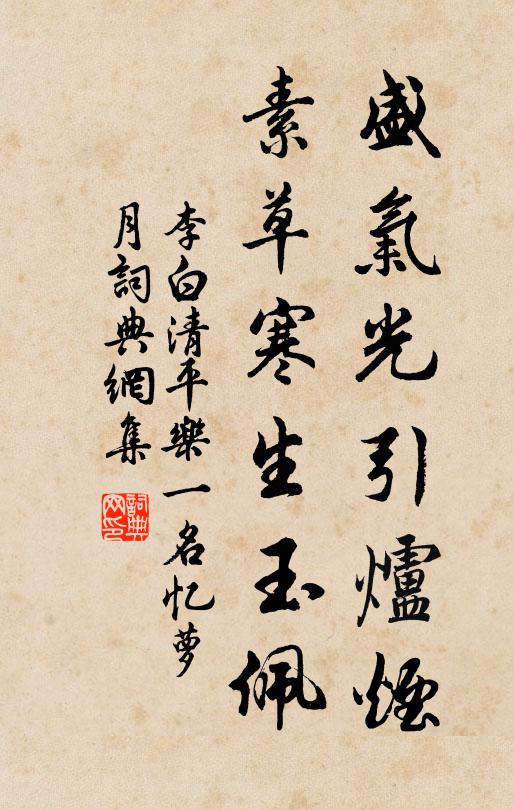 盛氣光引爐煙
素草寒生玉佩
李白清平樂一名忆萝
月詞典網集
詞典
网印